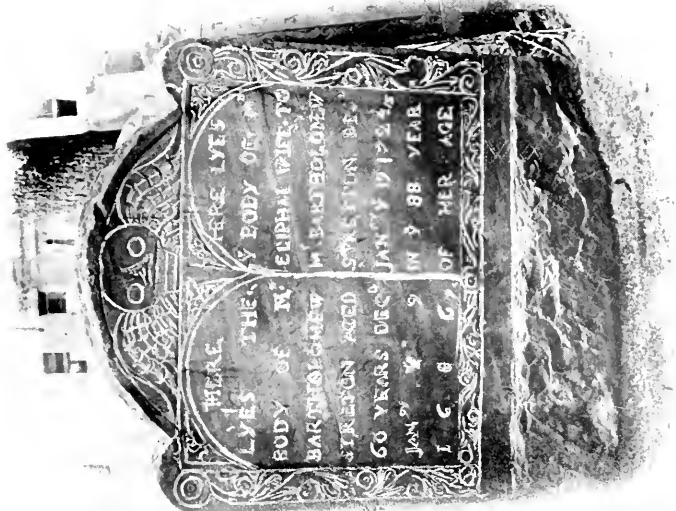 HERE
LYES THE
BODY OF Mr
BARTHOLOMEW
STRETTON AGED
60 YEARS DECd
JANry
1 6 8 6
HERE LYES
Ye BODY OF Mrs
ELIPHAL WIFE TO
Mr BARTHOLOMEW
STRETTON DECd
JANry
IN Ye 88 YEAR
OF HER AGE